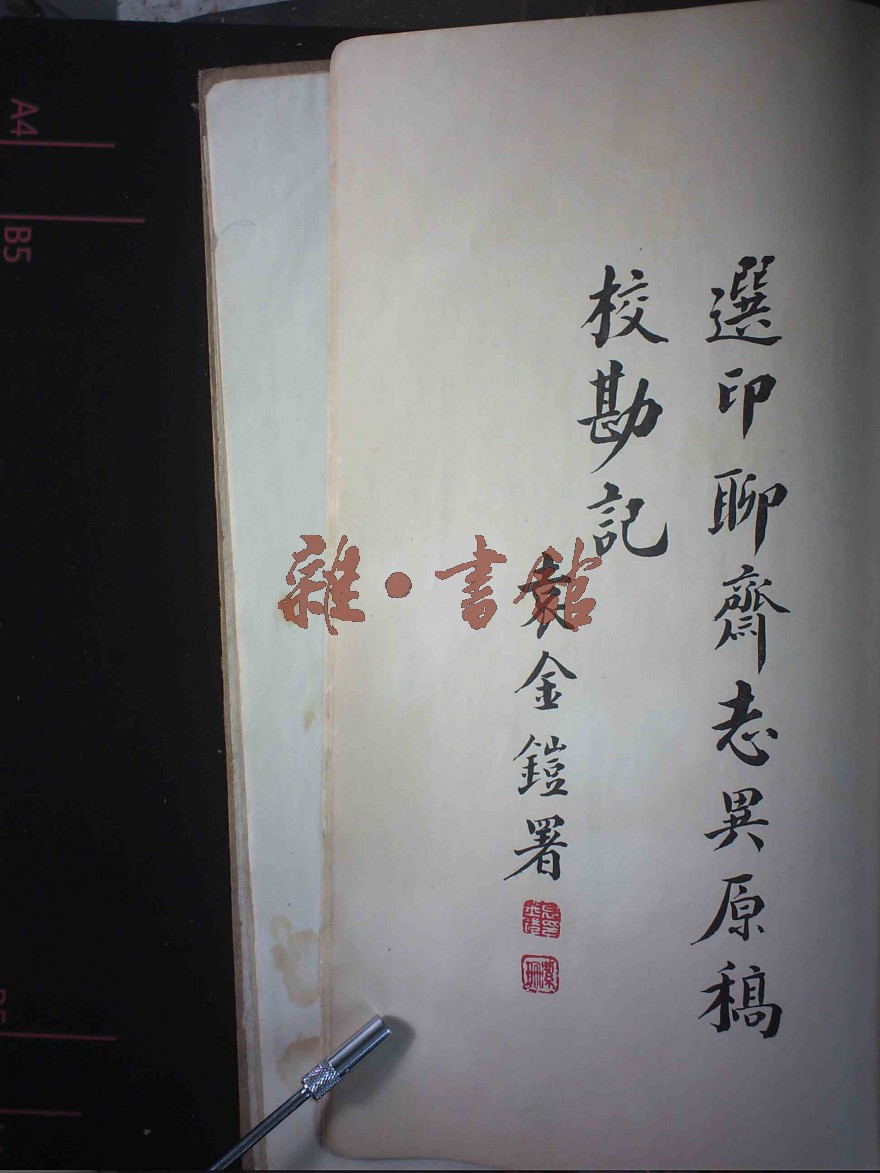 選印聊齋志異原稿
校勘記
袁金鎧署
雜·書館
A4
B5